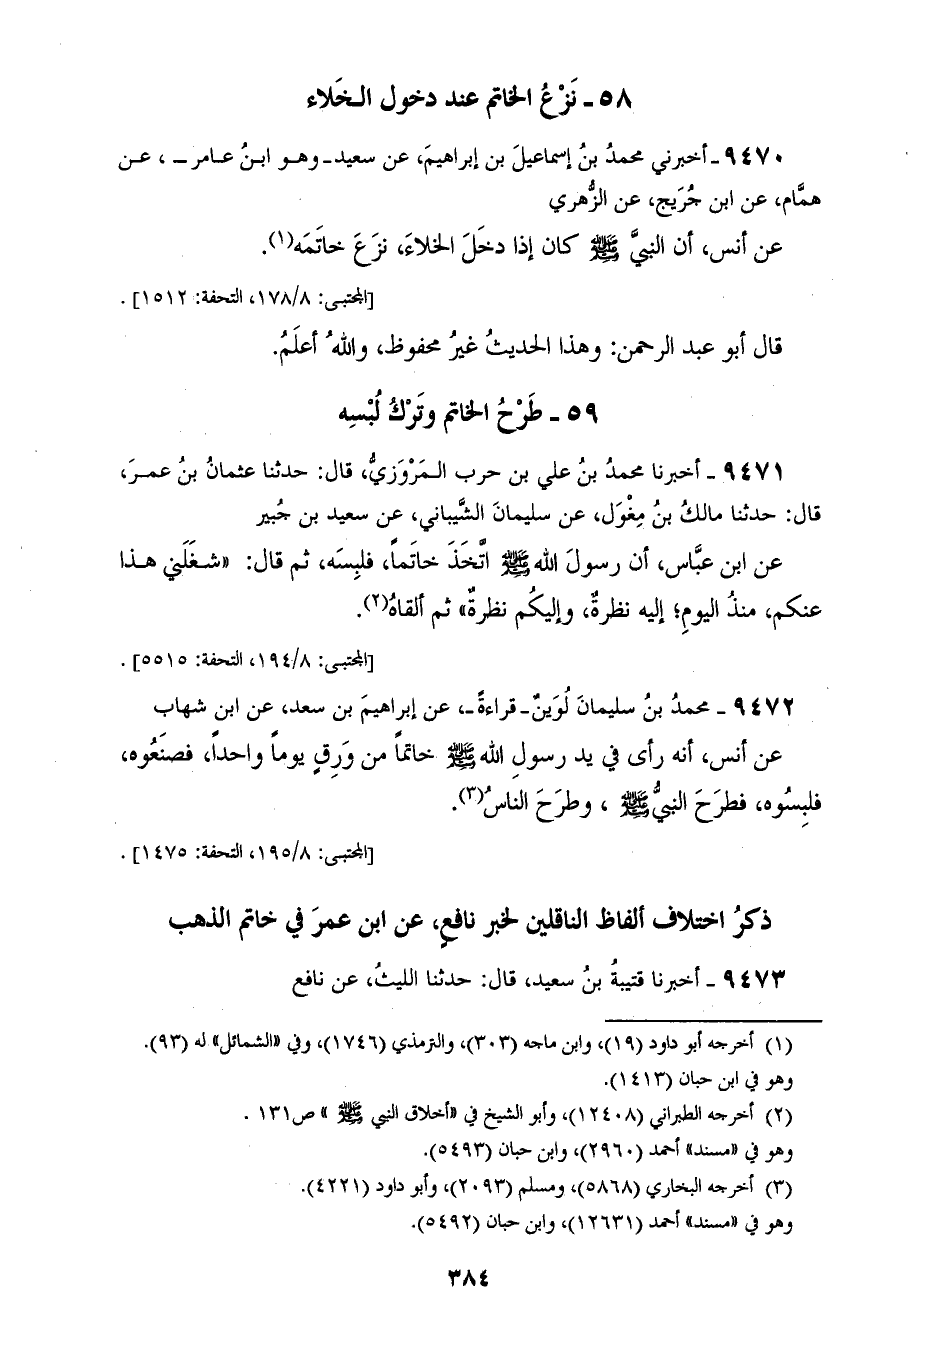 ٥٨ ـ نَزْعُ الخاتم عند دخول الـخَلاء
٩٤٧٠ ـ أخبرني محمدُ بنُ إسماعيلَ بن إبراهيمَ، عن سعيد ـ وهـو ابـنُ عـامر ـ ، عـن
همَّام، عن ابن جُرَيج، عن الزُّهري
عن أنس، أن النبيَّ ﷺ كان إذا دخَلَ الخلاءَ، نزَعَ خاتَمَه(١).
[المجتبى: ١٧٨/٨، التحفة: ١٥١٢] .
قال أبو عبد الرحمن: وهذا الحديثُ غيرُ محفوظ، واللهُ أعلَمُ.
٥٩ ـ طَرْحُ الخاتم وتَرْكُ لُبْسِه
٩٤٧١ ـ أخبرنا محمدُ بنُ علي بن حرب الـمَرْوَزيُّ، قال: حدثنا عثمانُ بنُ عمـرَ،
قال: حدثنا مالكُ بنُ مِغْوَل، عن سليمانَ الشَّيباني، عن سعيد بن جُبير
عن ابن عبَّاس، أن رسولَ الله ﷺ اتَّخَذَ خاتماً، فلبِسَه، ثم قال: «شـغَلَني هـذا
عنكم، منذُ اليومِ؛ إليه نظرةٌ، وإليكُم نظرةٌ» ثم ألقاهُ(٢).
[المجتبى: ١٩٤/٨، التحفة: ٥٥١٥] .
٩٤٧٢ ـ محمدُ بنُ سليمانَ لُوَينٌ ـ قراءةً ـ، عن إبراهيمَ بن سعد، عن ابن شهاب
عن أنس، أنه رأى في يد رسولِ الله ﷺ خاتماً من وَرِقٍ يوماً واحداً، فصنَعُوه،
فلبِسُوه، فطرَحَ النبيُّ ﷺ ، وطرَحَ الناسُ(٣).
[المجتبى: ١٩٥/٨، التحفة: ١٤٧٥] .
ذكرُ اختلاف ألفاظ الناقلين لخبر نافعٍ، عن ابن عمرَ في خاتم الذهب
٩٤٧٣ ـ أخبرنا قتيبةُ بنُ سعيد، قال: حدثنا الليثُ، عن نافع
(١) أخرجه أبو داود (١٩)، وابن ماجه (٣٠٣)، والترمذي (١٧٤٦)، وفي «الشمائل» له (٩٣).
وهو في ابن حبان (١٤١٣).
(٢) أخرجه الطبراني (١٢٤٠٨)، وأبو الشيخ في «أخلاق النبي ﷺ » ص١٣١ .
وهو في «مسند» أحمد (٢٩٦٠)، وابن حبان (٥٤٩٣).
(٣) أخرجه البخاري (٥٨٦٨)، ومسلم (٢٠٩٣)، وأبو داود (٤٢٢١).
وهو في «مسند» أحمد (١٢٦٣١)، وابن حبان (٥٤٩٢).
٣٨٤